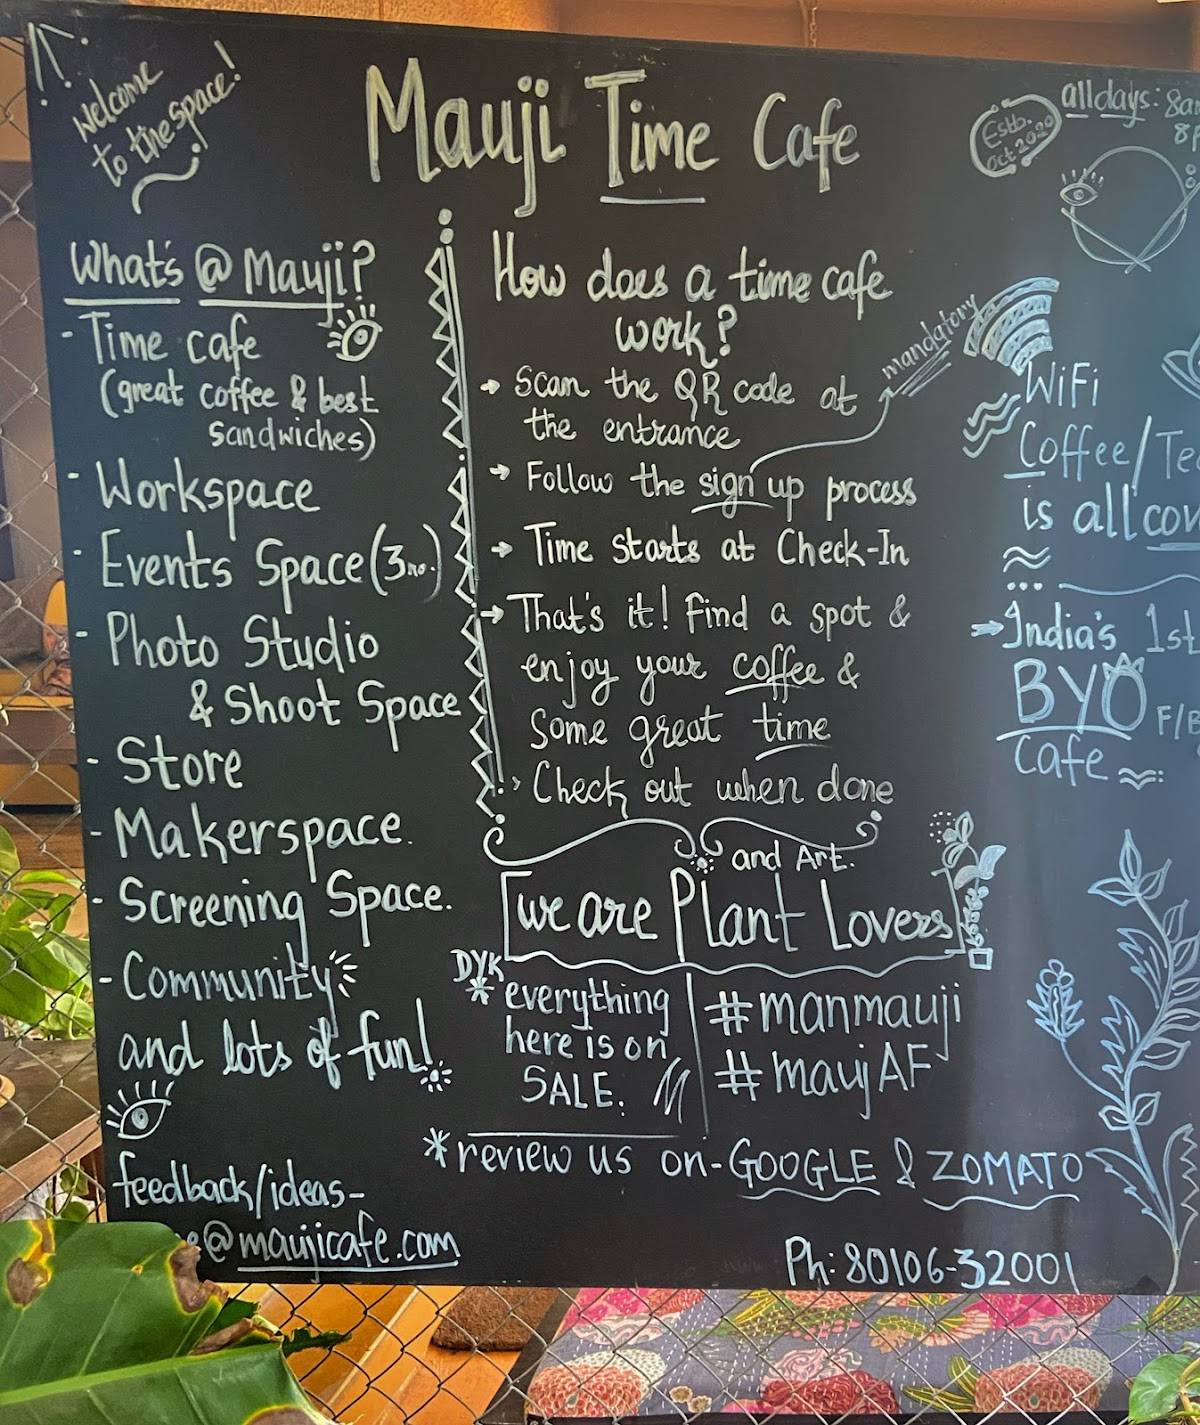 Welcome
to the space!
Mauji Time Cafe
Estb.
Oct 2020
all days:
What's @ Mauji?
- Time cafe
(great coffee & best
sandwiches)
- Workspace
- Events Space (3 no.)
- Photo Studio
& Shoot Space
- Store
- Makerspace.
- Screening Space.
- Community
and lots of fun!
feedback/ideas-
@maujicafe.com
How does a time cafe
work?
→ Scan the QR code at
the entrance
→ Follow the sign up process
mandatory
→ Time starts at Check-In
→ That's it! Find a spot &
enjoy your coffee &
Some great time
→ Check out when done
and Art.
We are Plant Lovers
DYK
* everything
here is on
SALE.
#manmauji
#maujAF
* review us on - GOOGLE & ZOMATO
Ph: 80106-32001
WiFi
Coffee/
is all
→ India's 1st
BYO
Cafe